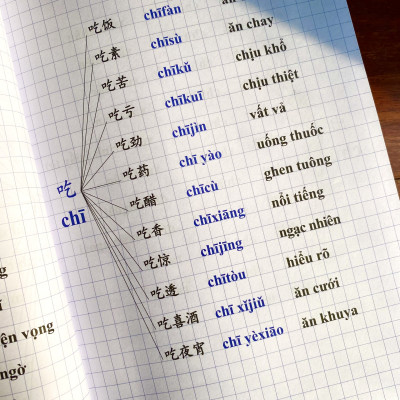 吃
chī
吃饭 chīfàn ăn
吃素 chīsù ăn chay
吃苦 chīkǔ chịu khổ
吃亏 chīkuī chịu thiệt
吃劲 chījìn vất vả
吃药 chī yào uống thuốc
吃醋 chīcù ghen tuông
吃香 chīxiāng nổi tiếng
吃惊 chījīng ngạc nhiên
吃透 chītòu hiểu rõ
吃喜酒 chī xǐjiǔ ăn cưới
吃夜宵 chī yèxiāo ăn khuya
vọng
ngờ